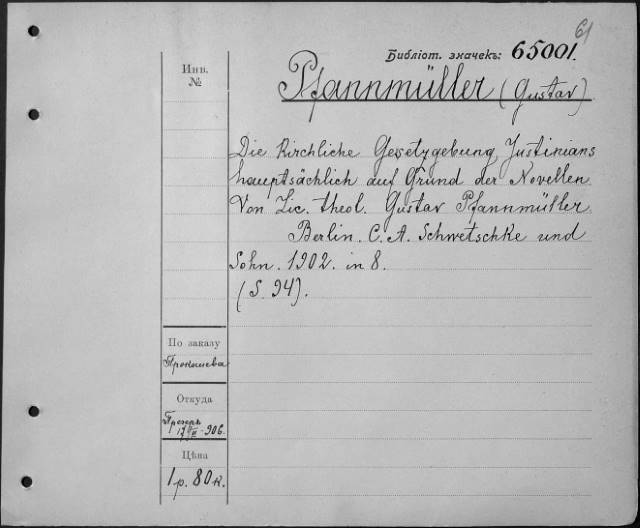 61
Библіот. значекъ: 65001.
Инв.
№
Pfannmüller (Gustav)
Die Kirchliche Gesetzgebung Justinians
hauptsächlich auf Grund der Novellen.
Von Lic. theol. Gustav Pfannmüller.
Berlin. C. A. Schwetschke und
Sohn. 1902. in 8.
(S. 94).
По заказу
Откуда
906.
Цѣна
1 р. 80 к.